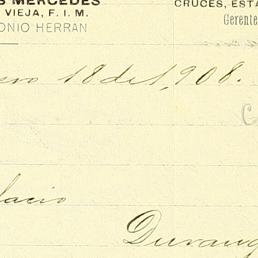 S MERCEDES
VIEJA, F. I. M.
ONIO HERRAN
CRUCES, ESTA
Gerente
ero 18 de 1,908.
lacio
Durang